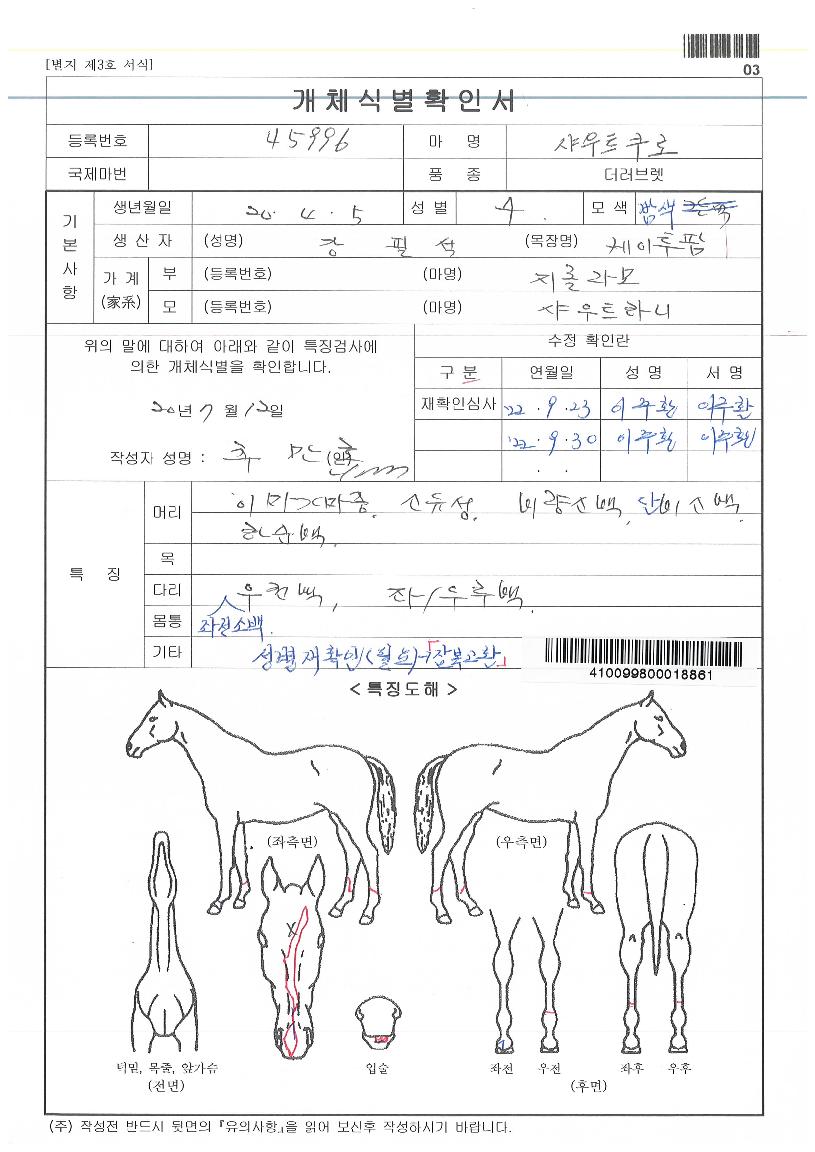 [별지 제3호 서식]
03
개체식별확인서
등록번호 45996 마 명 샤우트쿠로
국제마번 품 종 더러브렛
기본사항
생년월일 20. 4. 5 성 별 수. 모 색 밤색
생 산 자 (성명) 장 필 석 (목장명) 케이투팜
가 계 (家系) 부 (등록번호) (마명) 지롤라모
모 (등록번호) (마명) 샤우트라니
위의 말에 대하여 아래와 같이 특징검사에
의한 개체식별을 확인합니다.
20년 7 월 12일
작성자 성명 : 추 만 (인)
수정 확인란
구 분 연월일 성 명 서 명
재확인심사 '22 . 9 . 23 이주환 이주환
'22 . 9 . 30 이주환 이주환
. .
특 징
머리 유성. 비량소백, 단비소백,
하순백.
목
다리 우전백, 좌/우후백.
몸통 좌전소백.
기타 성별재확인(필요)→「잠복고환」
410099800018861
< 특징도해 >
(좌측면) (우측면)
X
턱밑, 목줄, 앞가슴
(전면)
입술
좌전 우전 좌후 우후
(후면)
(주) 작성전 반드시 뒷면의 『유의사항』을 읽어 보신후 작성하시기 바랍니다.